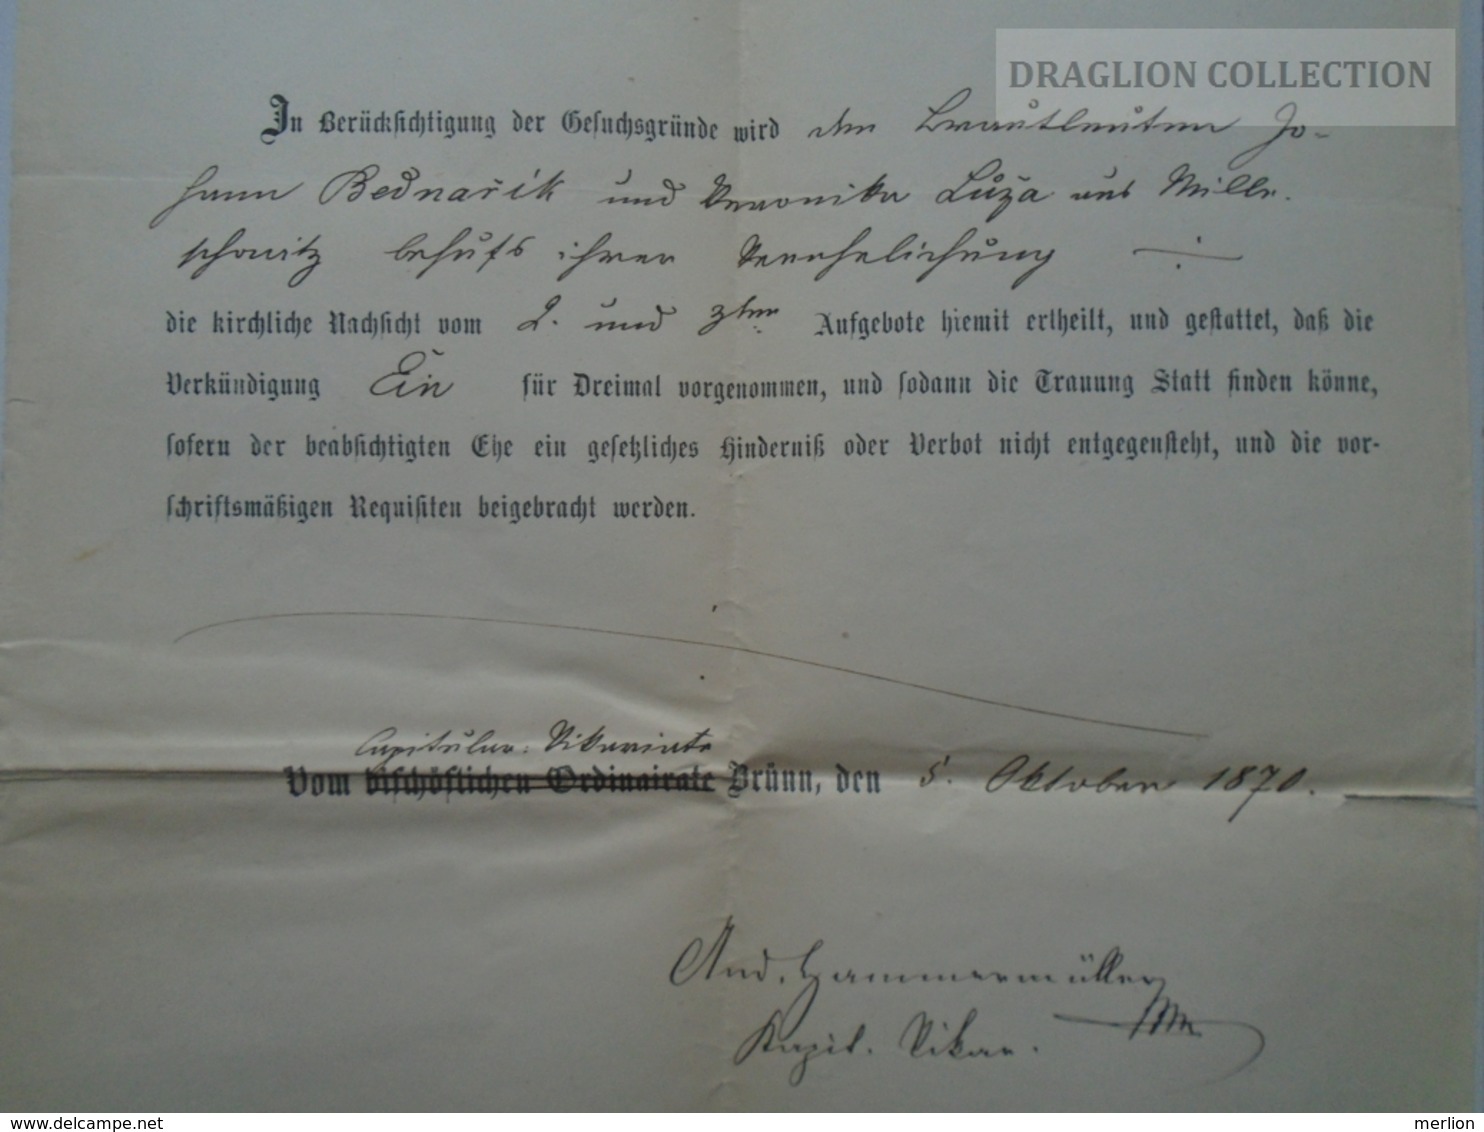 DRAGLION COLLECTION
In Berücksichtigung der Gesuchsgründe wird den Brautleuten Jo-
hann Bednařik und Veronika Luža aus Mille-
schowitz behufs ihrer Verehelichung
die kirchliche Nachsicht vom 2. und 3ten Aufgebote hiemit ertheilt, und gestattet, daß die
Verkündigung Ein für Dreimal vorgenommen, und sodann die Trauung Statt finden könne,
sofern der beabsichtigten Ehe ein gesetzliches Hinderniß oder Verbot nicht entgegensteht, und die vor-
schriftsmäßigen Requisiten beigebracht werden.
Capitular-Vikariate
Vom bischöflichen Ordinairate Brünn, den 5. Oktober 1870.
And. Hammermüller
Kapit. Vikar.
merlion